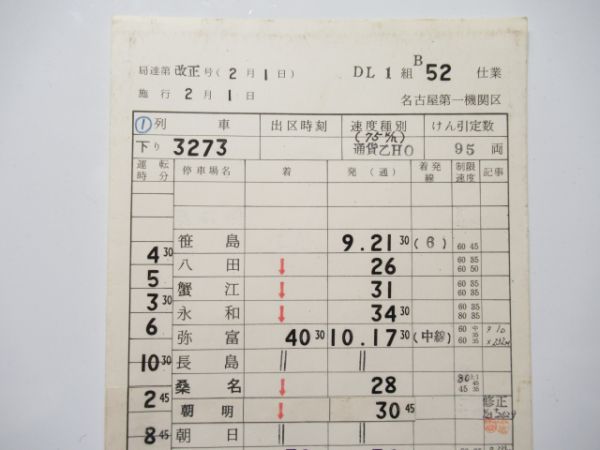 局達第 改正 号(2月1日) DL1組 B 52 仕業
施行 2月1日 名古屋第一機関区
① 列車 出区時刻 速度種別 けん引定数
下り 3273 (75k/h) 通貨乙HO 95両
運転時分 停車場名 着 発(通) 着発線 制限速度 記事
笹島 9.21 30 (6) 60 45
4 30
八田 ↓ 26 60 35 60 50
5
蟹江 ↓ 31 60 35
3 30
永和 ↓ 34 30 60 35 80 85
6
弥富 40 30 10.17 30 (中線)
10 30
長島 || ||
桑名 ↓ 28
2 45
朝明 ↓ 30 45 修正
8 45
朝日 || ||